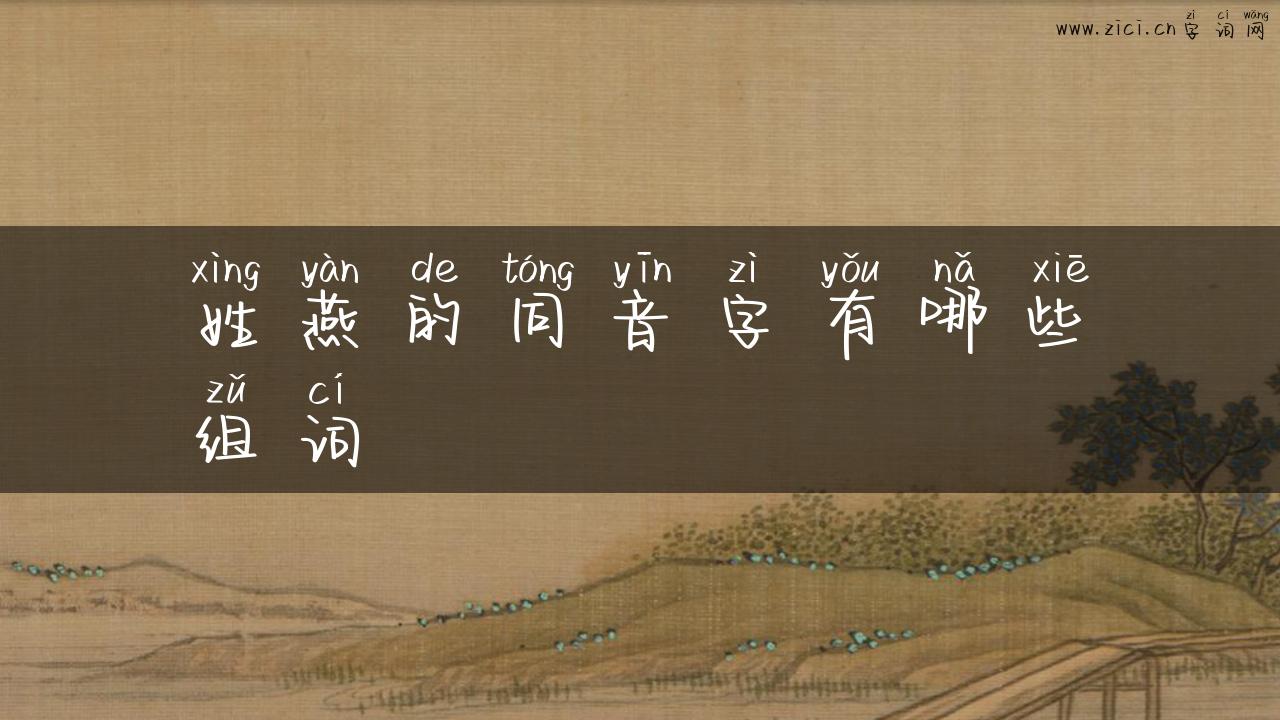 zì cí wǎng
www.zici.cn字词网
xìng yàn de tóng yīn zì yǒu nǎ xiē
姓燕的同音字有哪些
zǔ cí
组词